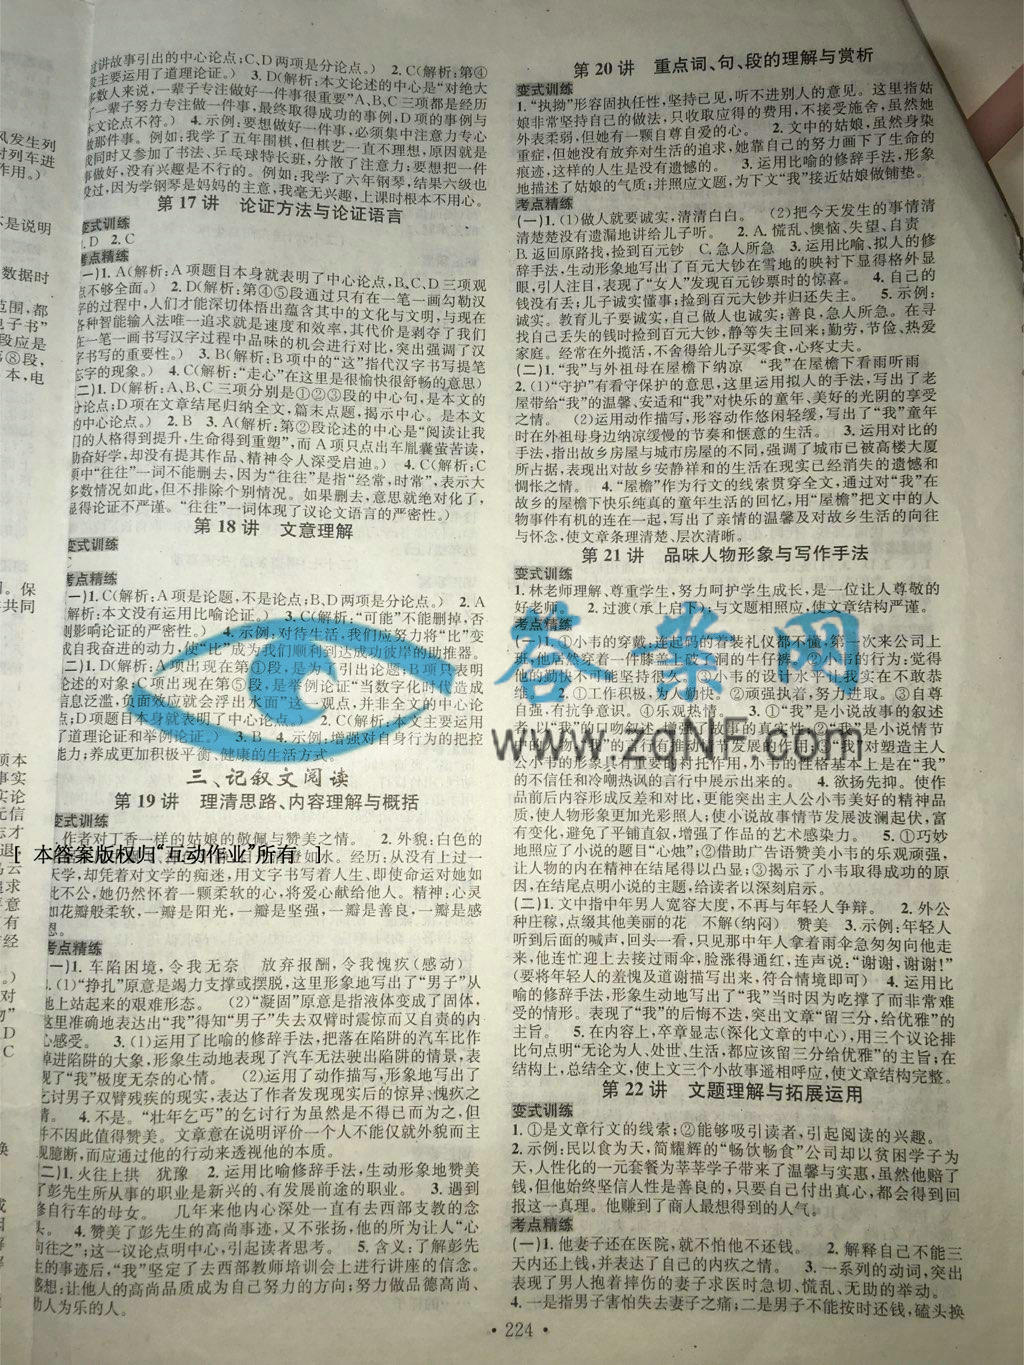 过讲故事引出的中心论点;C、D两项是分论点。) 2. C(解析:第④
段主要运用了道理论证。) 3. D(解析:本文论述的中心是“对绝大
多数人来说,一辈子专注做好一件事很重要”A、B、C三项都是经历
了一辈子努力专注做一件事,最终取得成功的事例,D项的事例与
本文论点不符。) 4. 示例:要想做好一件事,必须集中注意力专心
做那件事。例如:我学了五年围棋,但棋艺一直不理想,原因就是
我同时又参加了书法、乒乓球特长班,分散了注意力;要想把一件
事做好,没有兴趣是不行的。例如:我学了六年钢琴,结果六级也
没过,因为学钢琴是妈妈的主意,我毫无兴趣,上课时根本不用心。
第 17 讲 论证方法与论证语言
变式训练
1. D 2. C
考点精练
(一)1. A(解析:A项题目本身就表明了中心论点,B、C、D三项观
点不够全面。) 2. D(解析:第④⑤段通过只有在一笔一画勾勒汉
字的过程中,人们才能深切体悟出蕴含其中的文化与文明,与现在
各种智能输入法唯一追求就是速度和效率,其代价是剥夺了我们
在一笔一画书写汉字过程中品味的机会进行对比,突出强调了汉
字书写的重要性。) 3. B(解析:B项中的“这”指代汉字书写提笔
忘字的现象。) 4. C(解析:“走心”在这里是很愉快很舒畅的意思)
(二)1. D(解析:A、B、C三项分别是①②③段的中心句,是本文的
分论点;D项在文章结尾归纳全文,篇末点题,揭示中心。是本文
的中心论点。) 2. B 3. A(解析:第②段论述的中心是“阅读让我
们的人格得到提升,生命得到重塑”,而A项只点出车胤囊萤苦读,
勤奋好学,却没有提其作品、精神令人深受启迪。) 4. C(解析:C
项中“往往”一词不能删去,因为“往往”是指“经常,时常”,表示大
多数情况如此,但不排除个别情况。如果删去,意思就绝对化了,
显得论证不严谨。“往往”一词体现了议论文语言的严密性。)
第 18 讲 文意理解
变式训练
考点精练
(一)1. C(解析:A项是论题,不是论点;B、D两项是分论点。) 2. A
(解析:本文没有运用比喻论证。) 3. C(解析:“可能”不能删掉,否
则影响论证的严密性。) 4. 示例:对待生活,我们应努力将“比”变
成自我奋进的动力,使“比”成为我们顺利到达成功彼岸的助推器。
(二)1. D(解析:A项出现在第①段,是为了引出论题;B项只表明
论述的对象;C项出现在第⑤段,是举例论证“当数字化时代造成
信息泛滥,负面效应就会浮出水面”这一观点,并非全文的中心论
点;D项题目本身就表明了中心论点。) 2. C(解析:本文主要运用
了道理论证和举例论证。) 3. B 4. 示例:增强对自身行为的把控
能力;养成更加积极平衡、健康的生活方式。
三、记叙文阅读
第 19 讲 理清思路、内容理解与概括
变式训练
1. 作者对丁香一样的姑娘的敬佩与赞美之情。 2. 外貌:白色的
[ 本答案版权归“互动作业”所有 ]
澄如水。经历:从没有上过一
天学,却凭着对文学的痴迷,用文字书写着人生、即使命运对她如
此不公,她仍然怀着一颗柔软的心,将爱心献给他人。精神:心灵
如花瓣般柔软,一瓣是阳光,一瓣是坚强,一瓣是善良,一瓣是感
恩。
考点精练
(一)1. 车陷困境,令我无奈 放弃报酬,令我愧疚(感动)
2. (1)“挣扎”原意是竭力支撑或摆脱,这里形象地写出了“男子”从
地上站起来的艰难形态。 (2)“凝固”原意是指液体变成了固体,
这里准确地表达出“我”得知“男子”失去双臂时震惊而又自责的内
心感受。 3. (1)运用了比喻的修辞手法,把落在陷阱的汽车比作
掉进陷阱的大象,形象生动地表现了汽车无法驶出陷阱的情景,表
现了“我”极度无奈的心情。 (2)运用了动作描写,形象地写出了
乞讨男子双臂残疾的现实,表达了作者发现现实后的惊异、愧疚之
情。 4. 不是。“壮年乞丐”的乞讨行为虽然是不得已而为之,但
并不因此值得赞美。文章意在说明评价一个人不能仅就外貌而主
观臆断,而应通过他的行动来透视他的本质。
(二)1. 火往上拱 犹豫 2. 运用比喻修辞手法,生动形象地赞美
了彭先生所从事的职业是新兴的、有发展前途的职业。 3. 遇到
修自行车的母女。 几年来他内心深处一直有去西部支教的念
头。 4. 赞美了彭先生的高尚事迹,又不张扬,他的所为让人“心
向往之”;这一议论点明中心,引起读者思考。 5. 含义:了解彭先
生的事迹后,“我”坚定了去西部教师培训会上进行讲座的信念。
感想:让他人的高尚品质成为自己努力的方向;努力做品德高尚、
助人为乐的人。
第 20 讲 重点词、句、段的理解与赏析
变式训练
1. “执拗”形容固执任性,坚持己见,听不进别人的意见。这里指姑
娘非常坚持自己的做法,只收取应得的费用,不接受施舍,虽然她
外表柔弱,但她有一颗自尊自爱的心。 2. 文中的姑娘,虽然身染
重症,但她没有放弃对生活的追求,她靠自己的努力画下了生命的
痕迹,这样的人生是没有遗憾的。 3. 运用比喻的修辞手法,形象
地描述了姑娘的气质;并照应文题,为下文“我”接近姑娘做铺垫。
考点精练
(一)1. (1)做人就要诚实,清清白白。 (2)把今天发生的事情清
清楚楚没有遗漏地讲给儿子听。 2. A. 慌乱、懊恼、失望、自责
B. 返回原路找,捡到百元钞 C. 急人所急 3. 运用比喻、拟人的修
辞手法,生动形象地写出了百元大钞在雪地的映衬下显得格外显
眼,引人注目,表现了“女人”发现百元钞票时的惊喜。 4. 自己的
钱没有丢;儿子诚实懂事;捡到百元大钞并归还失主。 5. 示例:
诚实。教育儿子要诚实,自己做人也诚实;善良,急人所急。在寻
找自己丢失的钱时捡到百元大钞,静等失主回来;勤劳,节俭、热爱
家庭。经常在外揽活,不舍得给儿子买零食,心疼丈夫。
(二)1. “我”与外祖母在屋檐下纳凉 “我”在屋檐下看雨听雨
2. (1)“守护”有看守保护的意思,这里运用拟人的手法,写出了老
屋带给“我”的温馨、安适和“我”对快乐的童年、美好的光阴的享受
之情。 (2)运用动作描写,形容动作悠闲轻缓,写出了“我”童年
时在外祖母身边纳凉缓慢的节奏和惬意的生活。 3. 运用对比的
手法,指出故乡房屋与城市房屋的不同,强调了城市已被高楼大厦
所占据,表现出对故乡安静祥和的生活在现实已经消失的遗憾和
惆怅之情。 4. “屋檐”作为行文的线索贯穿全文,通过对“我”在
故乡的屋檐下快乐纯真的童年生活的回忆,用“屋檐”把文中的人
物事件有机的连在一起,写出了亲情的温馨及对故乡生活的向往
与怀念,使文章条理清楚、层次清晰。
第 21 讲 品味人物形象与写作手法
变式训练
1. 林老师理解、尊重学生,努力呵护学生成长,是一位让人尊敬的
好老师。 2. 过渡(承上启下);与文题相照应,使文章结构严谨。
考点精练
(一)1. ①小韦的穿戴,连起码的着装礼仪都不懂,第一次来公司上
班,他居然穿着一件膝盖上破了洞的牛仔裤。②小韦的行为:觉得
他的勤快不可能坚持很久。③小韦的设计水平:我实在不敢恭
维。 2. ①工作积极,为人勤快。②顽强执着,努力进取。③自尊
自强,有抗争意识。④乐观热情。 3. ①“我”是小说故事的叙述
者,以“我”的口吻叙述,增强了故事的真实性;②“我”是小说情节
中的人物,“我”的言行有推动情节发展的作用;③“我”对塑造主人
公小韦的形象具有重要的衬托作用,小韦的性格基本上是在“我”
的不信任和冷嘲热讽的言行中展示出来的。 4. 欲扬先抑。使作
品前后内容形成反差和对比,更能突出主人公小韦美好的精神品
质,使人物形象更加光彩照人;使小说故事情节发展波澜起伏,富
有变化,避免了平铺直叙,增强了作品的艺术感染力。 5. ①巧妙
地照应了小说的题目“心烛”;②借助广告语赞美小韦的乐观顽强,
让人物的内在精神在结尾得以凸显;③揭示了小韦取得成功的原
因,在结尾点明小说的主题,给读者以深刻启示。
(二)1. 文中指中年男人宽容大度,不再与年轻人争辩。 2. 外公
种庄稼,点缀其他美丽的花 不解(纳闷) 赞美 3. 示例:年轻人
听到后面的喊声,回头一看,只见那中年人拿着雨伞急匆匆向他走
来,他连忙迎上去接过雨伞,脸涨得通红,连声说:“谢谢,谢谢!”
(要将年轻人的羞愧及道谢描写出来,符合情境即可) 4. 运用比
喻的修辞手法,形象生动地写出了“我”当时因为吃撑了而非常难
受的情形。表现了“我”的后悔不迭,突出文章“留三分,给优雅”的
主旨。 5. 在内容上,卒章显志(深化文章的中心),用三个议论排
比句点明“无论为人、处世、生活,都应该留三分给优雅”的主旨;在
结构上,总结全文,使上文三个小故事遥相呼应,使文章结构完整。
第 22 讲 文题理解与拓展运用
变式训练
1. ①是文章行文的线索;②能够吸引读者,引起阅读的兴趣。
2. 示例:民以食为天,简耀辉的“畅饮畅食”公司却以贫困学子为
天,人性化的一元套餐为莘莘学子带来了温馨与实惠,虽然他赔了
钱,但他始终坚信人性是善良的,只要自己付出真心,都会得到回
报这一真理。他赚到了商人最想得到的人气。
考点精练
(一)1. 他妻子还在医院,就不怕他不还钱。 2. 解释自己不能三
天内还上钱,并表达了自己的内疚之情。 3. 一系列的动词,突出
表现了男人抱着摔伤的妻子求医时急切、慌乱、无助的举动。
4. 一是指男子害怕失去妻子之痛;二是男子不能按时还钱,磕头换
· 224 ·
答案网
www.zqNF.com